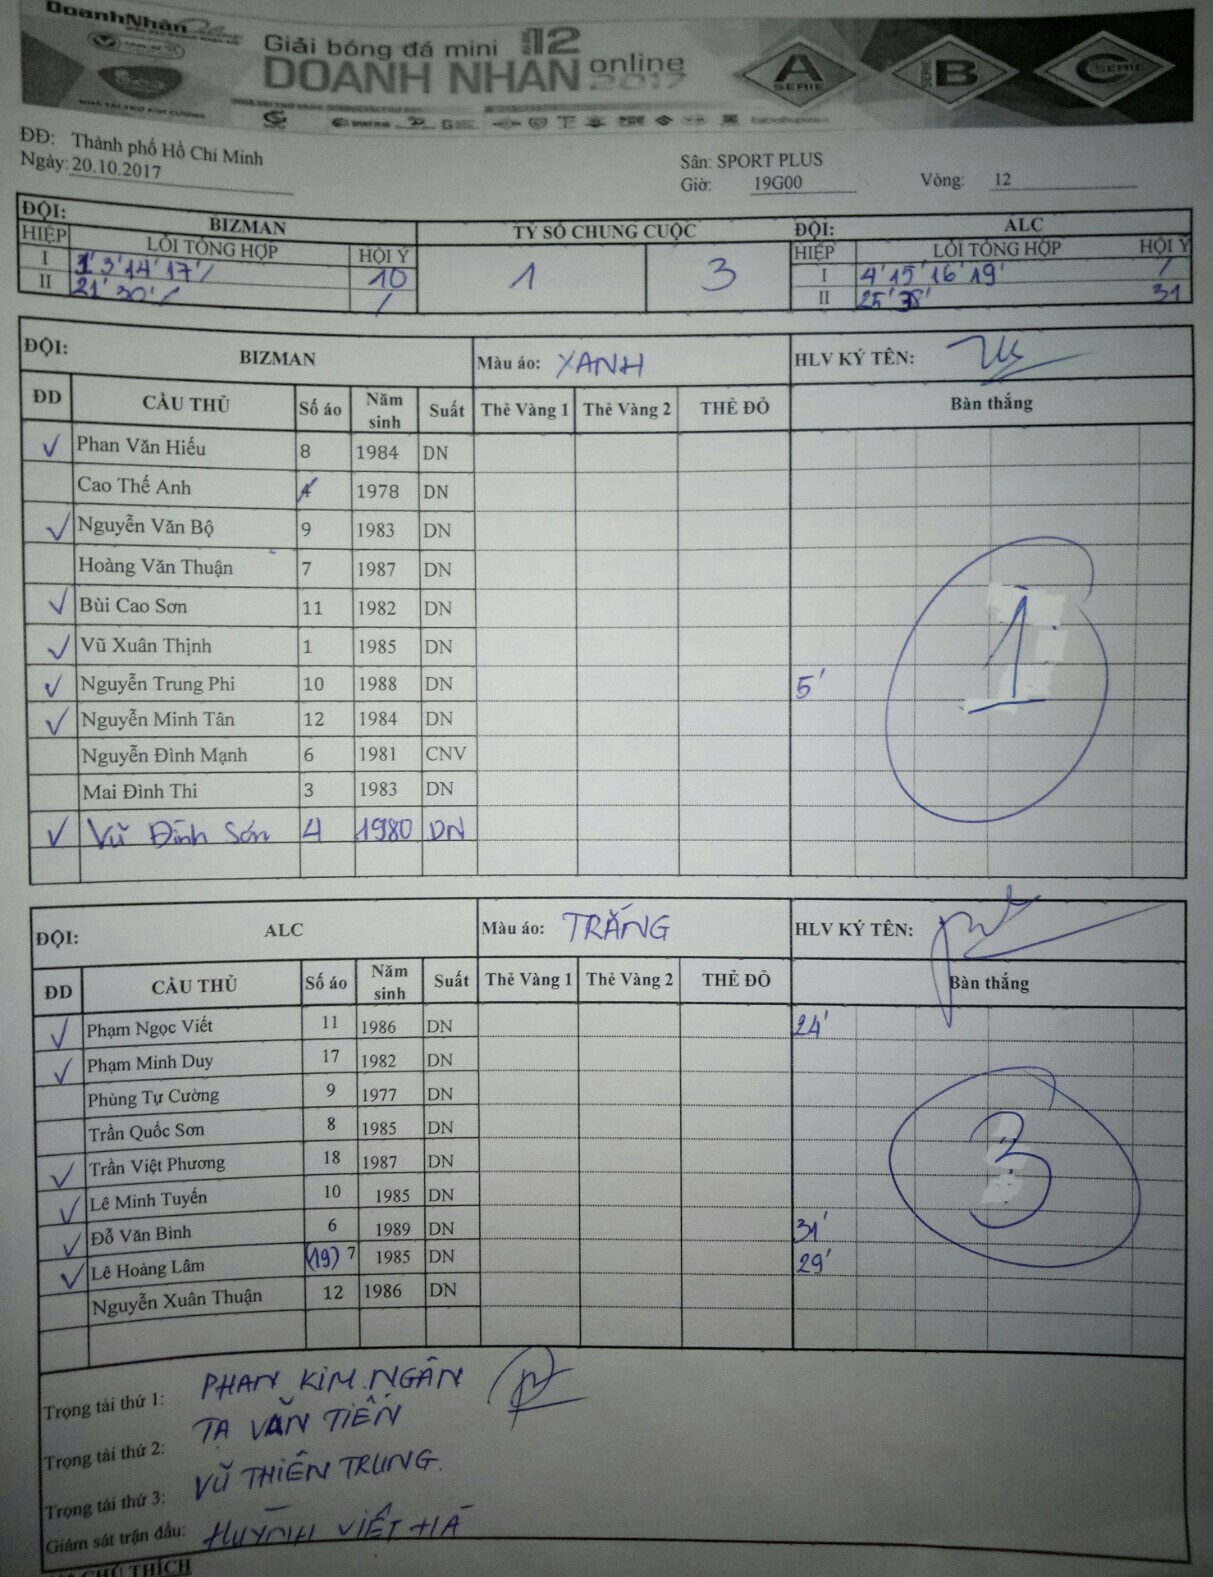 DoanhNhân Online
Giải bóng đá mini 12
DOANH NHÂN online
2017
A SERIE
B SERIE
C SERIE
NHÀ TÀI TRỢ KIM CƯƠNG
ĐĐ: Thành phố Hồ Chí Minh
Ngày: 20.10.2017
Sân: SPORT PLUS
Giờ: 19G00 Vòng: 12
ĐỘI: BIZMAN TỶ SỐ CHUNG CUỘC ĐỘI: ALC
HIỆP LỖI TỔNG HỢP HỘI Ý HIỆP LỖI TỔNG HỢP HỘI Ý
I 1' 3' 14' 17' / 10 1 3 I 4' 15' 16' 19' /
II 21' 30' / / II 25' 38' 31
ĐỘI: BIZMAN Màu áo: XANH HLV KÝ TÊN:
ĐD CẦU THỦ Số áo Năm sinh Suất Thẻ Vàng 1 Thẻ Vàng 2 THẺ ĐỎ Bàn thắng
✓ Phan Văn Hiếu 8 1984 DN
Cao Thế Anh 4 1978 DN
✓ Nguyễn Văn Bộ 9 1983 DN
Hoàng Văn Thuận 7 1987 DN
✓ Bùi Cao Sơn 11 1982 DN
✓ Vũ Xuân Thịnh 1 1985 DN
✓ Nguyễn Trung Phi 10 1988 DN 5' 1
✓ Nguyễn Minh Tân 12 1984 DN
Nguyễn Đình Mạnh 6 1981 CNV
Mai Đình Thi 3 1983 DN
✓ Vũ Đình Sơn 4 1980 DN
ĐỘI: ALC Màu áo: TRẮNG HLV KÝ TÊN:
ĐD CẦU THỦ Số áo Năm sinh Suất Thẻ Vàng 1 Thẻ Vàng 2 THẺ ĐỎ Bàn thắng
✓ Phạm Ngọc Viết 11 1986 DN 24'
✓ Phạm Minh Duy 17 1982 DN
Phùng Tự Cường 9 1977 DN
Trần Quốc Sơn 8 1985 DN
✓ Trần Việt Phương 18 1987 DN 3
✓ Lê Minh Tuyến 10 1985 DN
✓ Đỗ Văn Bình 6 1989 DN 31'
✓ Lê Hoàng Lâm (19) 7 1985 DN 29'
Nguyễn Xuân Thuận 12 1986 DN
Trọng tài thứ 1: PHAN KIM NGÂN
Trọng tài thứ 2: TẠ VĂN TIẾN
Trọng tài thứ 3: VŨ THIÊN TRUNG.
Giám sát trận đấu: HUỲNH VIẾT HÀ
CHÚ THÍCH